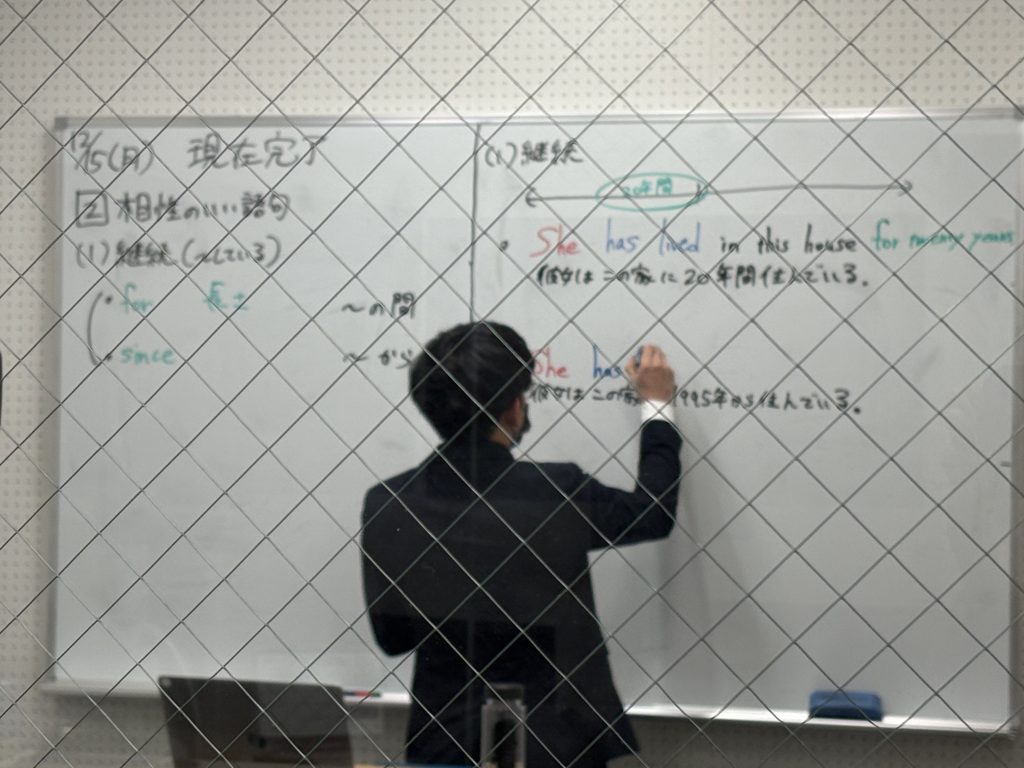 12/5(月) 現在完了
2 相性のいい語句
(1) 継続(〜している)
・for 長さ 〜の間
・since 〜から
(1) 継続
20年間
・She has lived in this house for twenty years
彼女はこの家に20年間住んでいる。
She has
彼女はこの家 1995年から住んでいる。